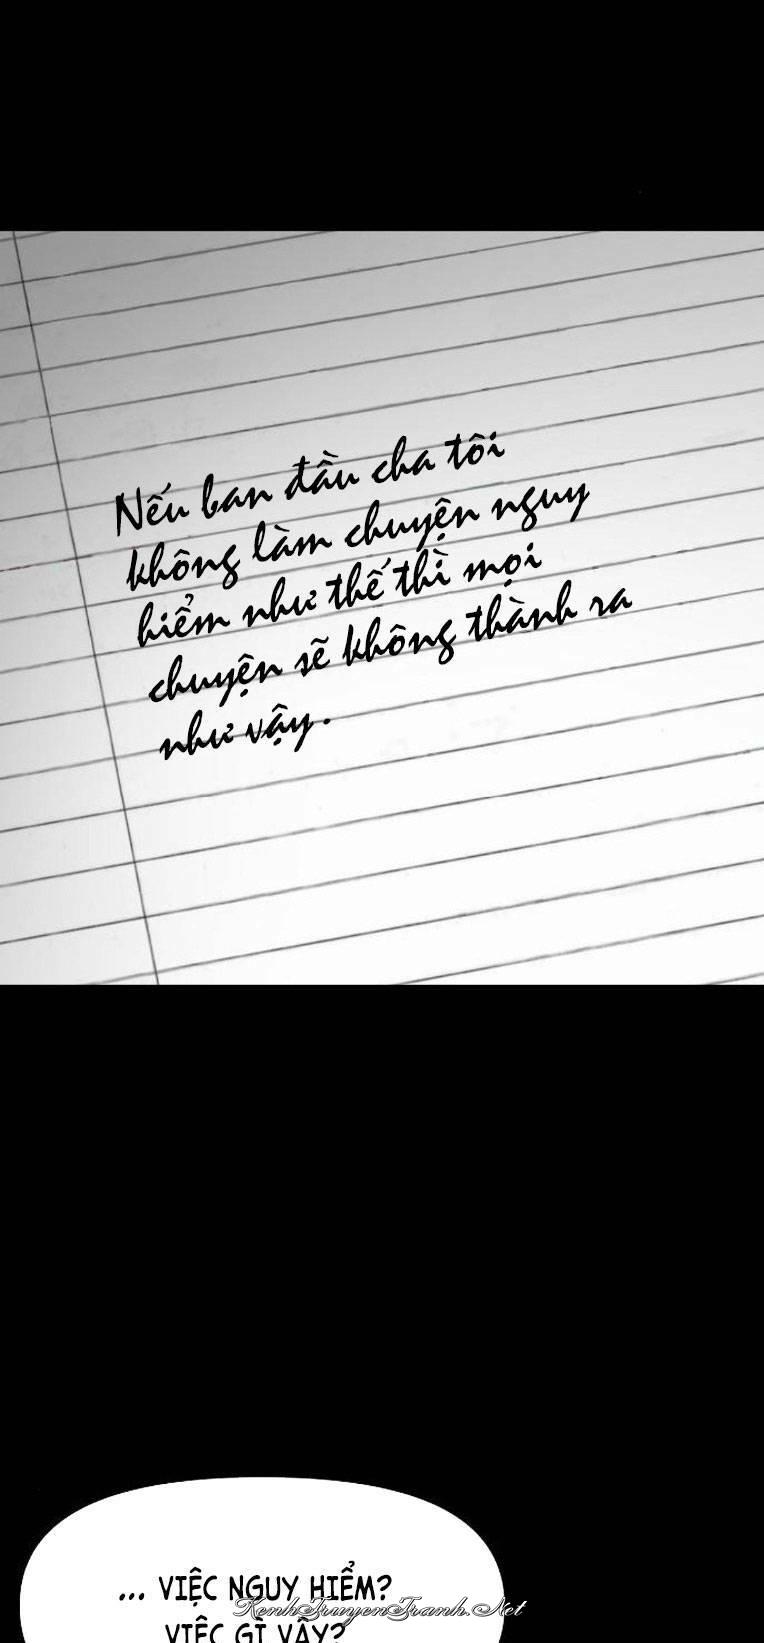 Nếu ban đầu cha tôi
không làm chuyện nguy
hiểm như thế thì mọi
chuyện sẽ không thành ra
như vậy.
... VIỆC NGUY HIỂM?
KenhTruyenTranh.Net
VIỆC GÌ VẬY?